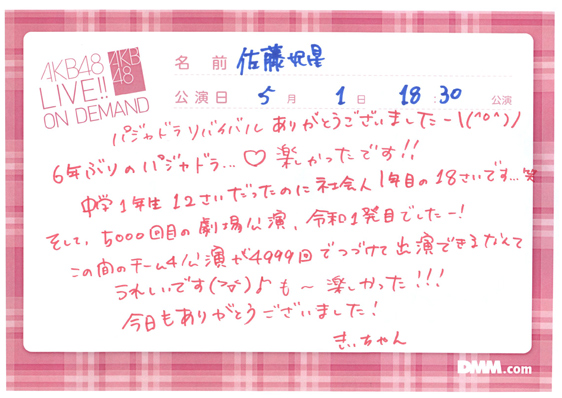 AKB48
LIVE!!
ON DEMAND
AKB
48
名前 佐藤妃星
公演日 5月 1日 18:30 公演
パジャドラリバイバルありがとうございましたー\(^o^)/
6年ぶりのパジャドラ...♡楽しかったです!!
中学1年生12さいだったのに社会人1年目の18さいです...笑
そして、5000回目の劇場公演、令和1発目でしたー!
この間のチーム4公演が4999回でつづけて出演できるなんて
うれしいです(>▽<)♪も〜楽しかった!!!
今日もありがとうございました!
きぃちゃん
DMM.com